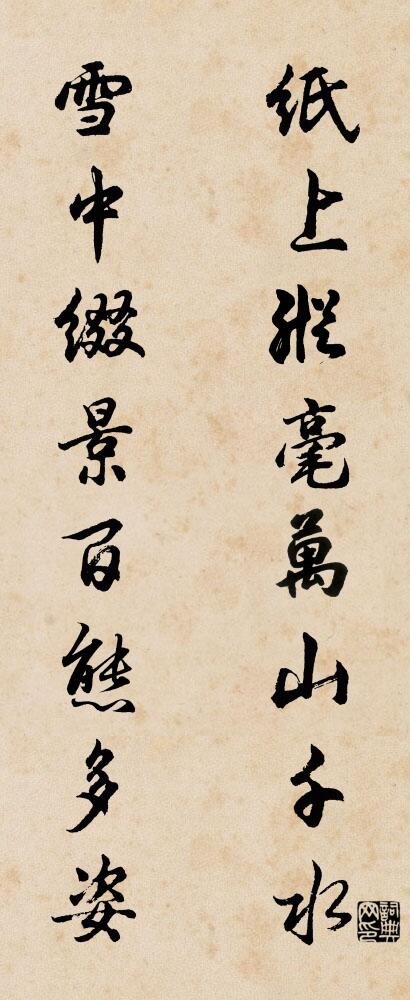 紙上縱毫萬山千水
雪中綴景百態多姿
詞典网印